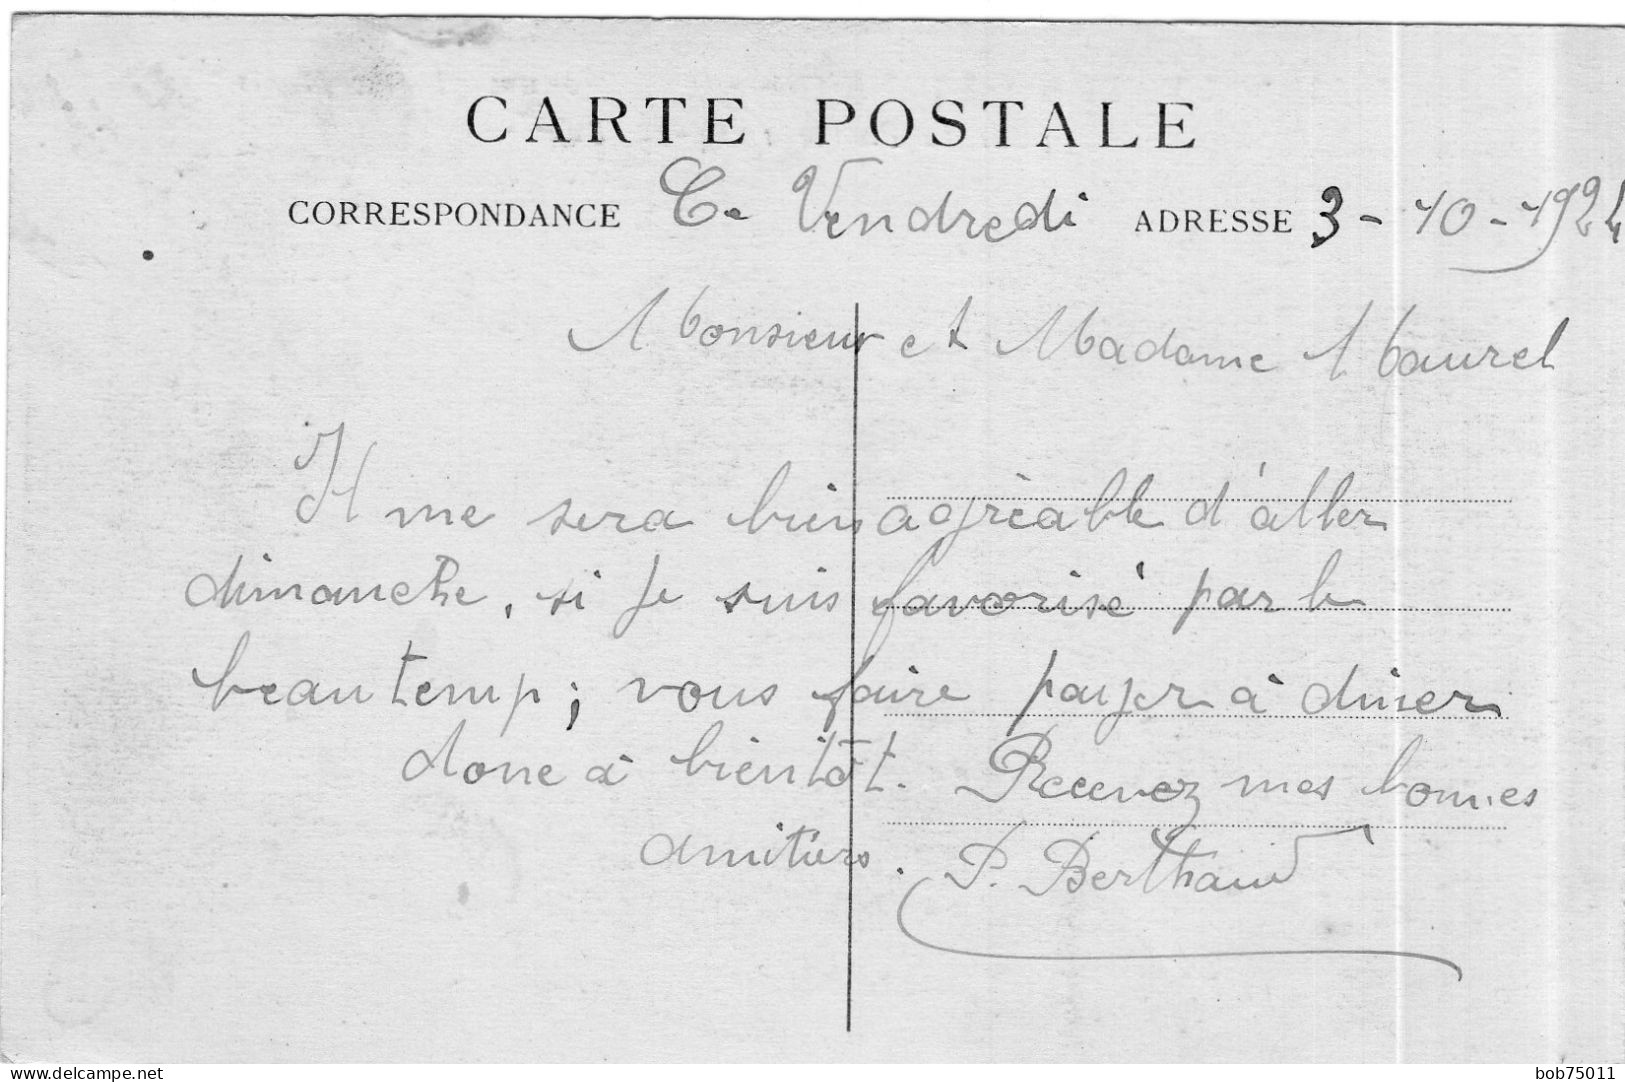 CARTE POSTALE
CORRESPONDANCE Ce Vendredi ADRESSE 3-10-1924
Monsieur et Madame Maurel
Il me sera bien agrèable d'aller
dimanche, si je suis favorisé par le
beau temp; vous faire payer à diner
donc à bientôt. Recevez mes bonnes
amitiers. P. Berthaud
delcampe.net
bob75011